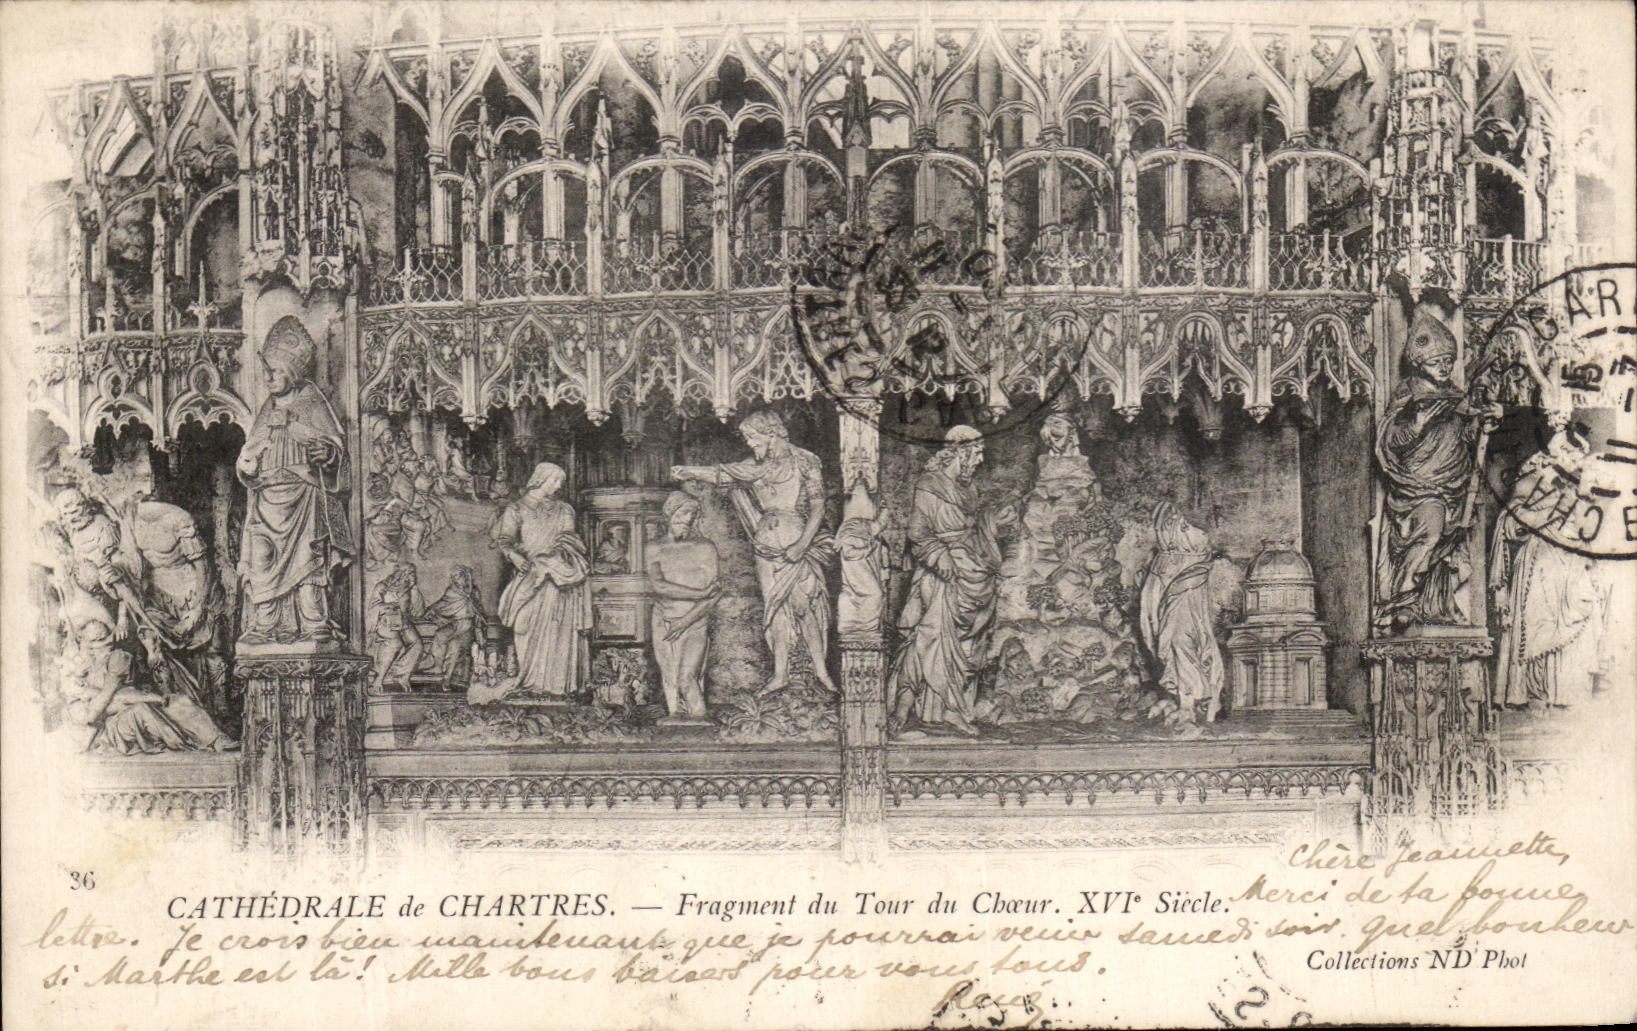 CHARTRES GARE
15
11
36
CATHÉDRALE de CHARTRES. — Fragment du Tour du Chœur. XVIe Siècle.
Chère Jeannette,
Merci de ta bonne
lettre. Je crois bien maintenant que je pourrai venir samedi soir. Quel bonheur
si Marthe est là! Mille bons baisers pour vous tous.
Collections ND Phot